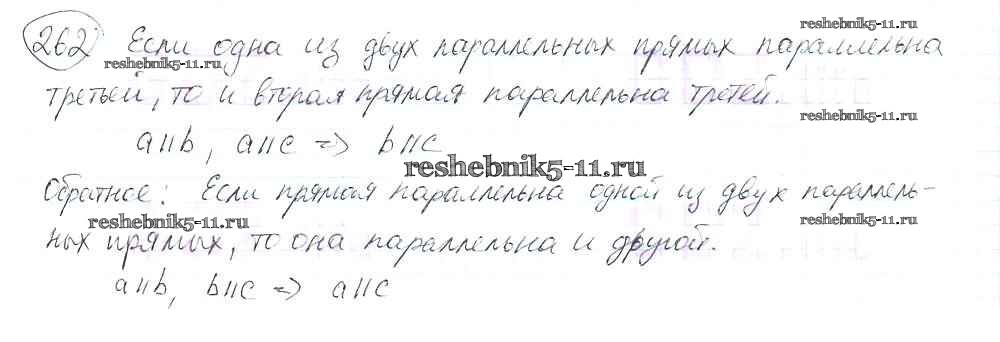 reshebnik5-11.ru
262 Если одна из двух параллельных прямых параллельна
reshebnik5-11.ru
третьей, то и вторая прямая параллельна третей.
reshebnik5-11.ru
a||b, a||c => b||c
reshebnik5-11.ru
Обратное: Если прямая параллельна одной из двух параллель-
reshebnik5-11.ru reshebnik5-11.ru
ных прямых, то она параллельна и другой.
a||b, b||c => a||c